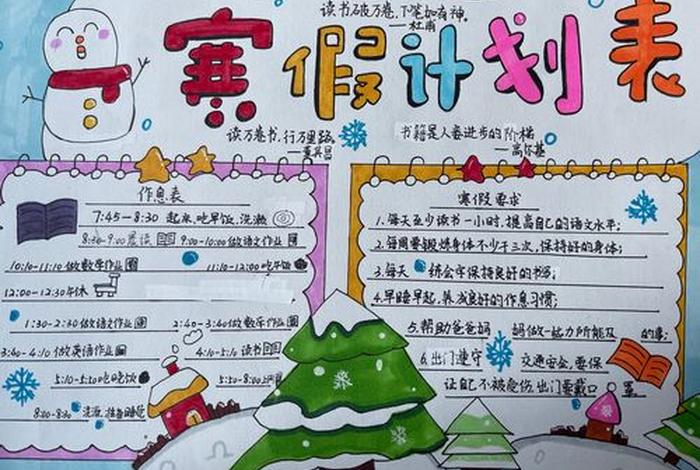 读书破万卷,下笔如有神。
—杜甫
寒假计划表
读万卷书,行万里路。
—董其昌
书籍是人类进步的阶梯
—高尔基
作息表
7:45—8:30 起床、吃早饭、洗漱
8:30-9:00晨读 9:00-10:00做语文作业
10:10-11:10做数学作业 11:10-12:00吃午饭
12:00-12:30午休
1:30-2:30做语文作业 2:40-3:40做数学作业
3:40-4:10做英语作业 4:10-5:10读书
5:10-5:50吃晚饭 5:50-8:00
8:00-8:30 洗漱、准备睡觉
寒假要求
1.每天至少读书一小时,提高自己的语文水平;
2.每周要锻炼身体不少于三次,保持好的身体;
3.每天 练会字保持良好的书写;
4.早睡早起,养成良好的作息习惯;
5.帮助爸爸妈 妈做一些力所能及 的事;
6.出门遵守 交通安全,要保
让自己不被受伤,出门要戴口 罩。